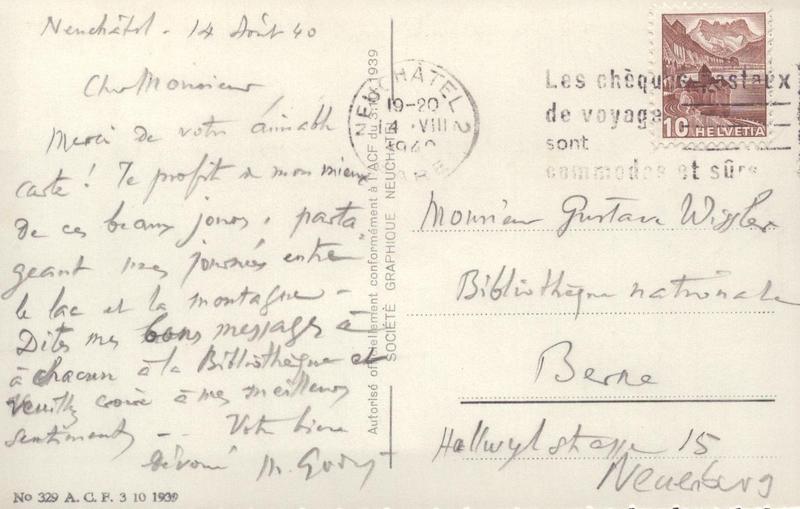 Neuchâtel - 14 Août 40
Cher Monsieur
Merci de votre aimable
carte! Je profite de mon mieux
de ces beaux jours, parta-
geant mes journées entre
le lac et la montagne -
Dites mes bons messages à
à chacun à la Bibliothèque et
veuillez croire à mes meilleurs
sentiments -- Votre bien
dévoué M. Godet
No 329 A. C. F. 3 10 1939
Autorisé officiellement conformément à l'ACF du 3.IX.1939
SOCIÉTÉ GRAPHIQUE NEUCHÂTEL
NEUCHÂTEL 2
19-20
14.VIII
1940
Les chèques postaux
de voyage
sont
commodes et sûrs
10 HELVETIA
Monsieur Gustave Wissler
Bibliothèque nationale
Berne
Hallwylstrasse 15